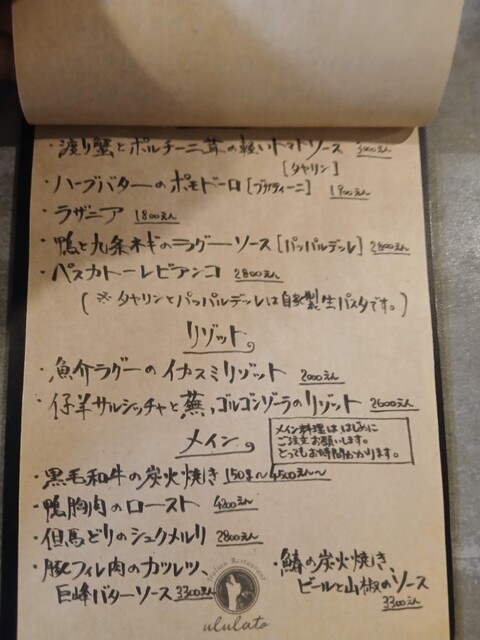 ・渡り蟹とポルチーニ茸の軽いトマトソース
[タヤリン]
・ハーブバターのポモドーロ[ブカティーニ] 1900えん
・ラザニア 1800えん
・鴨と九条ネギのラグーソース[パッパルデッレ] 2800えん
・ペスカトーレビアンコ 2800えん
(※タヤリンとパッパルデッレは自家製生パスタです。)
リゾット
・魚介ラグーのイカスミリゾット 2000えん
・仔羊サルシッチャと蕪、ゴルゴンゾーラのリゾット 2600えん
メイン
メイン料理ははじめに
ご注文お願いします。
とってもお時間かかります。
・黒毛和牛の炭火焼き 150g〜4500えん〜
・鴨胸肉のロースト 4200えん
・但馬どりのシュクメルリ 2800えん
・豚フィレ肉のカツレツ、
巨峰バターソース 3300えん
・鰆の炭火焼き、
ビールと山椒のソース
3300えん
Italian Restaurant
ululato